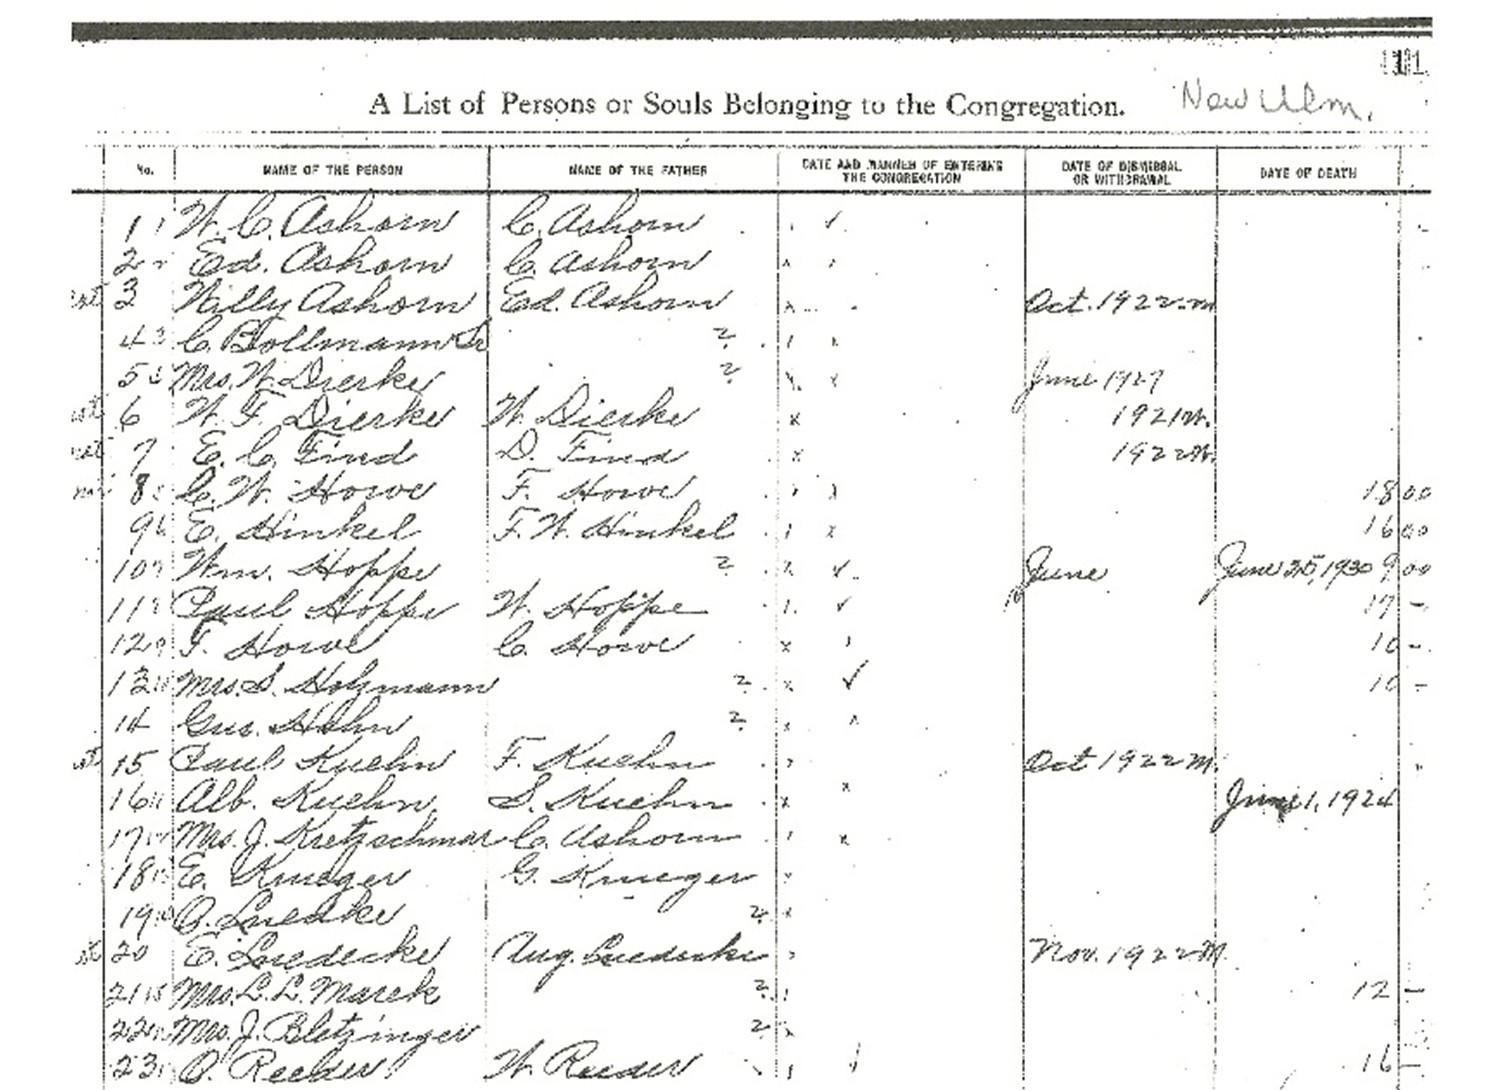 111
A List of Persons or Souls Belonging to the Congregation. New Ulm.
No. NAME OF THE PERSON NAME OF THE FATHER DATE AND MANNER OF ENTERING THE CONGREGATION DATE OF DISMISSAL OR WITHDRAWAL DATE OF DEATH
1 W. C. Ashorn C. Ashorn
2 Ed. Ashorn C. Ashorn
3 Willy Ashorn Ed. Ashorn Oct. 1922 m
4 C. Bollmann Sr ?
5 Mrs. W. Dierke ? June 1927
6 W. F. Dierke W. Dierke 1921 M.
7 E. C. Find D. Find 1922 M.
8 C. W. Howe F. Howe 18 00
9 E. Hinkel F. W. Hinkel 16 00
10 Wm. Hoppe ? June June 25, 1930 9 00
11 Paul Hoppe W. Hoppe 17 -
12 F. Howe C. Howe 10 -
13 Mrs. S. Holzmann ? 10 -
14 Gus. Hahn ?
15 Paul Kuehn F. Kuehn Oct 1922 M.
16 Alb. Kuehn S. Kuehn June 1, 1924
17 Mrs. J. Kretzschmar C. Ashorn
18 E. Krueger G. Krueger
19 O. Luedke ?
20 E. Luedecke Aug. Luedecke Nov. 1922 M.
21 Mrs. L. L. Marek ? 12 -
22 Mrs. J. Bletzinger ?
23 O. Reeder W. Reeder 16 -